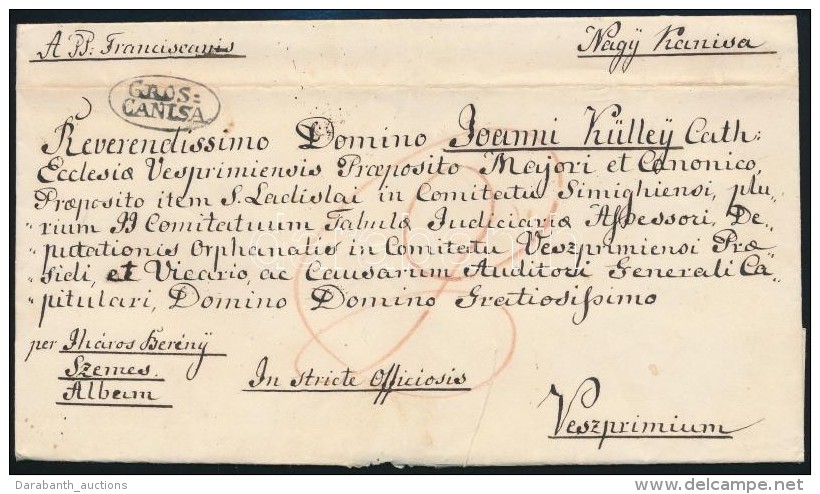 A PP. Franciscanis
Nagÿ Kanisa
GROS=
CANISA
Reverendissimo Domino Joanni Külleÿ Cath:
Ecclesiæ Vesprimiensis Præposito Majori et Canonico,
Præposito item S. Ladislai in Comitatu Simighiensi, plu„
„rium JJ Comitatuum Tabulæ Judiciariæ Assessori, De„
„putationis Orphanalis in Comitatu Veszprimiensi Præ„
„sidi, et Vicario, ac Causarum Auditori Generali Ca„
„pitulari, Domino Domino Gratiosissimo
per Iháros Berénÿ
Szemes.
Albam
In stricte Officiosis
Veszprimium
Darabanth_auctions
delcampe.net